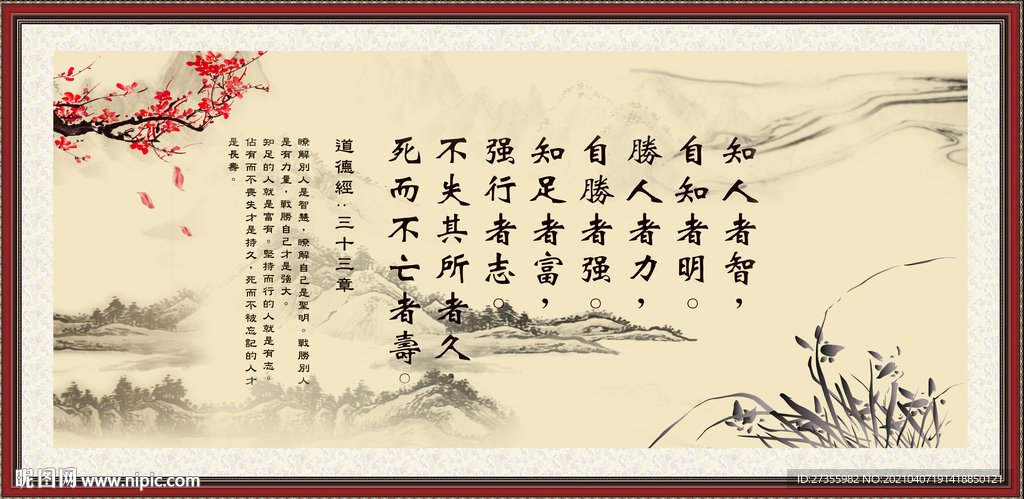 知人者智，
自知者明。
勝人者力，
自勝者强。
知足者富，
强行者志。
不失其所者久
死而不亡者壽。
道德經：三十三章
瞭解別人是智慧，瞭解自己是聖明。戰勝別人
是有力量，戰勝自己才是強大。
知足的人就是富有。堅持而行的人就是有志。
佔有而不喪失才是持久，死而不被忘記的人才
是長壽。
昵图网 www.nipic.com
ID:27355982 NO:20210407191418850121